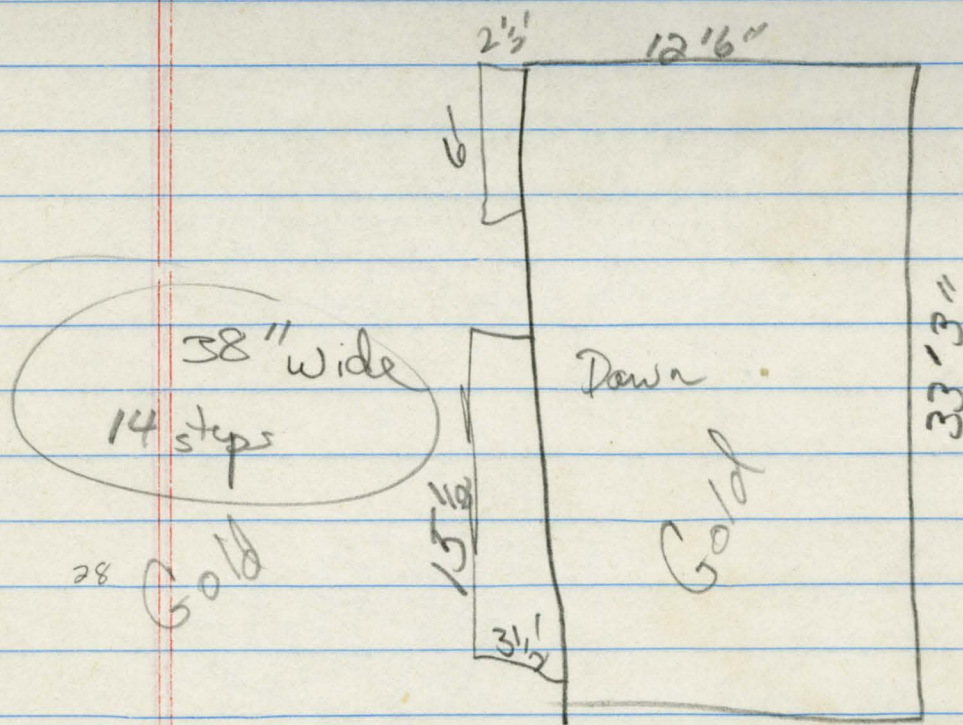 2'½'
12'6"
6'
33'3"
38" wide
14 steps
Down
Gold
28 Gold
3½'